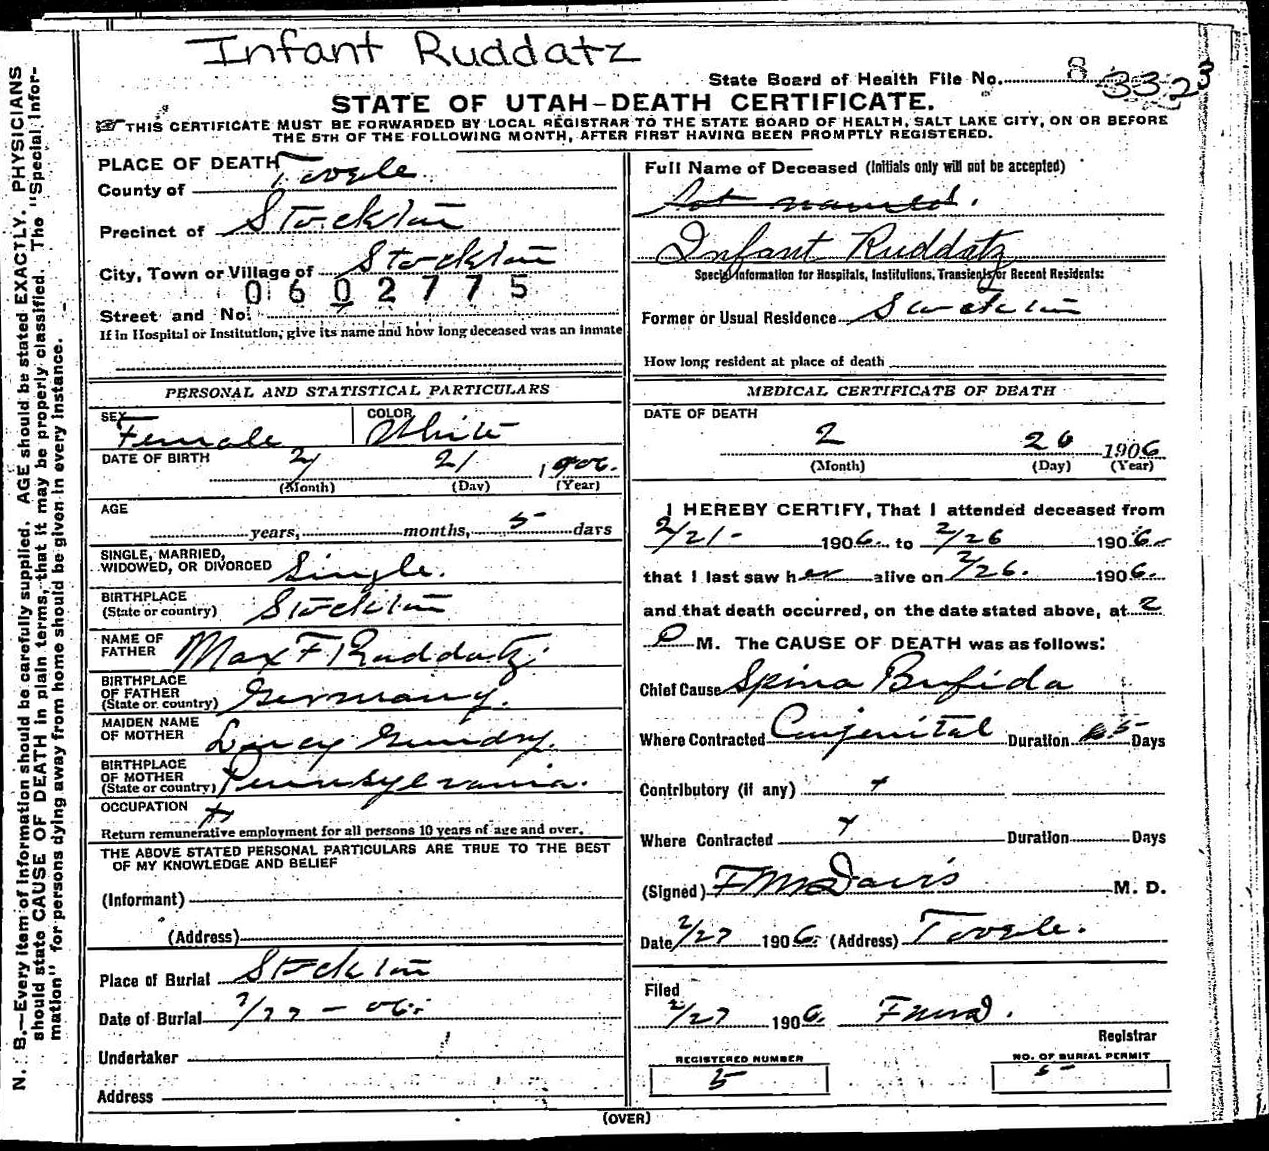 Infant Ruddatz
State Board of Health File No. 8 3323
STATE OF UTAH-DEATH CERTIFICATE.
THIS CERTIFICATE MUST BE FORWARDED BY LOCAL REGISTRAR TO THE STATE BOARD OF HEALTH, SALT LAKE CITY, ON OR BEFORE
THE 5TH OF THE FOLLOWING MONTH, AFTER FIRST HAVING BEEN PROMPTLY REGISTERED.
N. B.—Every item of information should be carefully supplied. AGE should be stated EXACTLY. PHYSICIANS
should state CAUSE OF DEATH in plain terms, that it may be properly classified. The "Special Infor-
mation" for persons dying away from home should be given in every instance.
PLACE OF DEATH
County of Tooele
Precinct of Stockton
City, Town or Village of Stockton
0602775
Street and No.
If in Hospital or Institution, give its name and how long deceased was an inmate
PERSONAL AND STATISTICAL PARTICULARS
SEX Female COLOR White
DATE OF BIRTH 2 21 1906.
(Month) (Day) (Year)
AGE years, months, 5 days
SINGLE, MARRIED,
WIDOWED, OR DIVORCED Single.
BIRTHPLACE
(State or country) Stockton
NAME OF
FATHER Max F Ruddatz
BIRTHPLACE
OF FATHER
(State or country) Germany.
MAIDEN NAME
OF MOTHER Lucy Gundry.
BIRTHPLACE
OF MOTHER
(State or country) Pennsylvania.
OCCUPATION x
Return remunerative employment for all persons 10 years of age and over.
THE ABOVE STATED PERSONAL PARTICULARS ARE TRUE TO THE BEST
OF MY KNOWLEDGE AND BELIEF
(Informant)
(Address)
Place of Burial Stockton
Date of Burial 2/27-06.
Undertaker
Address
Full Name of Deceased (Initials only will not be accepted)
Not named.
Infant Ruddatz
Special Information for Hospitals, Institutions, Transients, or Recent Residents:
Former or Usual Residence Stockton
How long resident at place of death
MEDICAL CERTIFICATE OF DEATH
DATE OF DEATH
2 26 1906
(Month) (Day) (Year)
I HEREBY CERTIFY, That I attended deceased from
2/21- 1906 to 2/26 1906
that I last saw her alive on 2/26. 1906.
and that death occurred, on the date stated above, at 2
P M. The CAUSE OF DEATH was as follows:
Chief Cause Spina Bufida
Where Contracted Conjenital Duration 5 Days
Contributory (if any) x
Where Contracted x Duration Days
(Signed) F M Davis M. D.
Date 2/27 1906. (Address) Tooele.
Filed
2/27 1906 FMD.
Registrar
REGISTERED NUMBER
5
NO. OF BURIAL PERMIT
5
(OVER)